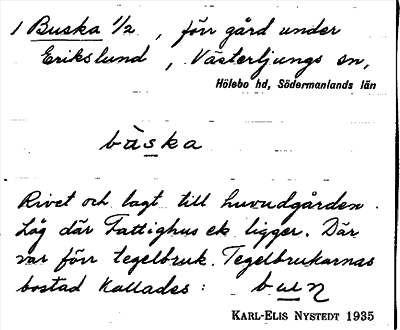 1 Buska 1/2, förr gård under
Erikslund, Västerljungs sn,
Hölebo hd, Södermanlands län
bùska
Rivet och lagt till huvudgården.
Låg där Fattighus ek. ligger. Där
var förr tegelbruk. Tegelbrukarnas
bostad kallades:
KARL-ELIS NYSTEDT 1935